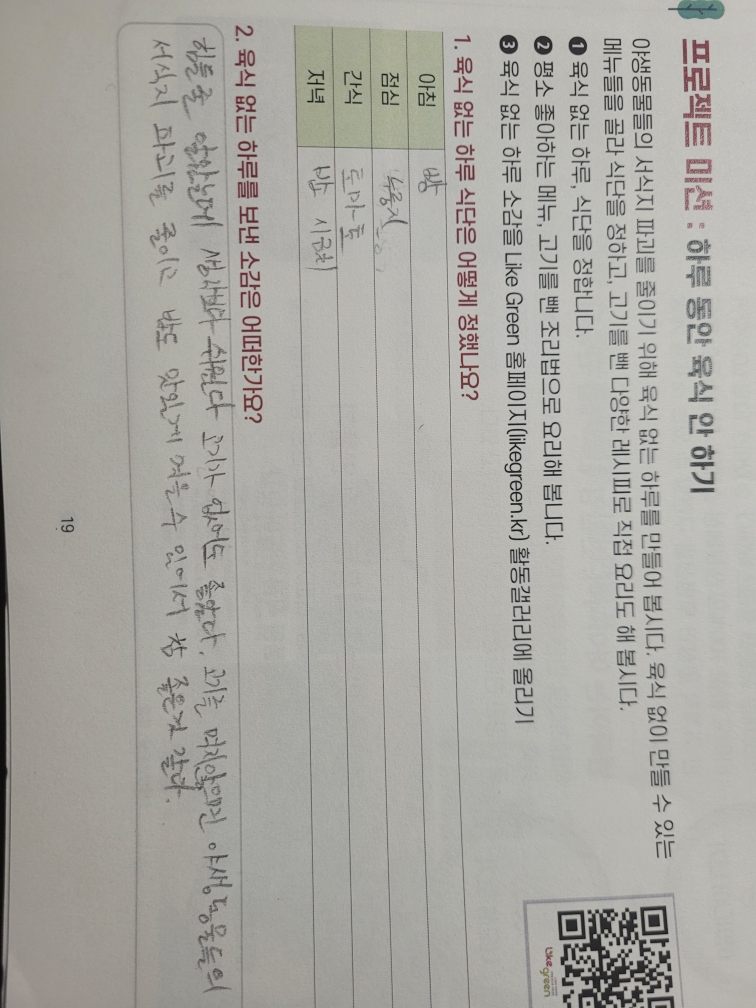 프로젝트 미션 : 하루 동안 육식 안 하기
야생동물들의 서식지 파괴를 줄이기 위해 육식 없는 하루를 만들어 봅시다. 육식 없이 만들 수 있는
메뉴들을 골라 식단을 정하고, 고기를 뺀 다양한 레시피로 직접 요리도 해 봅시다.
❶ 육식 없는 하루, 식단을 정합니다.
❷ 평소 좋아하는 메뉴, 고기를 뺀 조리법으로 요리해 봅니다.
❸ 육식 없는 하루 소감을 Like Green 홈페이지(likegreen.kr) 활동갤러리에 올리기
Like green
1. 육식 없는 하루 식단은 어떻게 정했나요?
아침 빵
점심 누룽지
간식 토마토
저녁 밥 시금치
2. 육식 없는 하루를 보낸 소감은 어떠한가요?
힘들 줄 알았는데 생각보다 쉬웠다 고기가 없어도 좋았다. 고기를 먹지않으면 야생동물들의
서식지 파괴를 줄이고 밥도 맛있게 먹을수 있어서 참 좋은것 같다.
19